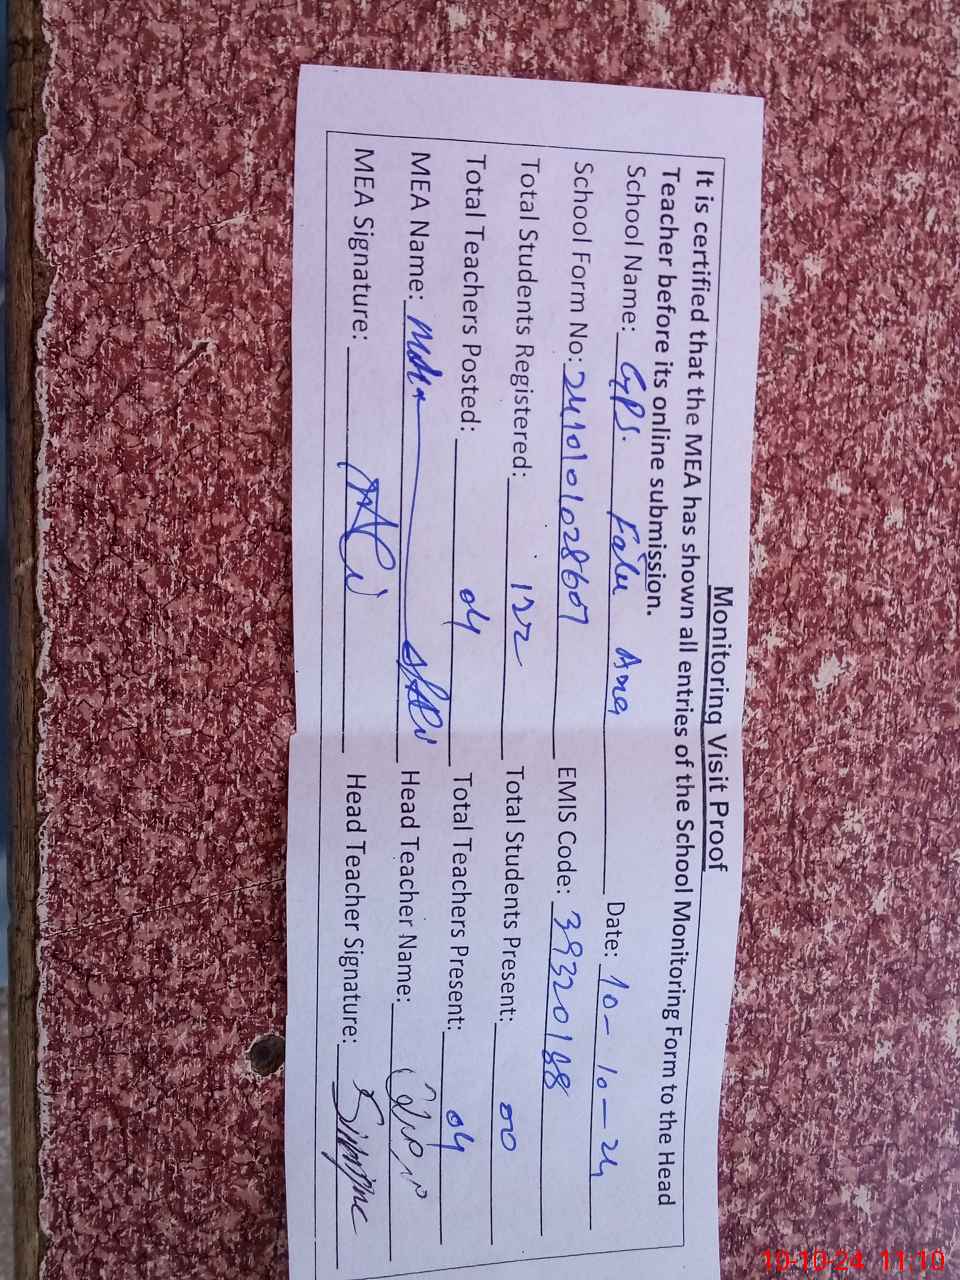 Monitoring Visit Proof
It is certified that the MEA has shown all entries of the School Monitoring Form to the Head
Teacher before its online submission.
School Name: GPS. Date: 10-10-24
School Form No: EMIS Code: 39320188
Total Students Registered: 122 Total Students Present: 00
Total Teachers Posted: 04 Total Teachers Present: 04
MEA Name: Head Teacher Name:
MEA Signature: Head Teacher Signature:
10-10-24 11:10